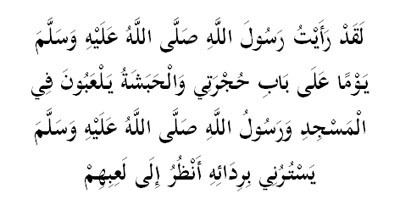 لَقَدْ رَأَيْتُ رَسُولَ اللَّهِ صَلَّى اللَّهُ عَلَيْهِ وَسَلَّمَ
يَوْمًا عَلَى بَابِ حُجْرَتِي وَالْحَبَشَةُ يَلْعَبُونَ فِي
الْمَسْجِدِ وَرَسُولُ اللَّهِ صَلَّى اللَّهُ عَلَيْهِ وَسَلَّمَ
يَسْتُرُنِي بِرِدَائِهِ أَنْظُرُ إِلَى لَعِبِهِمْ